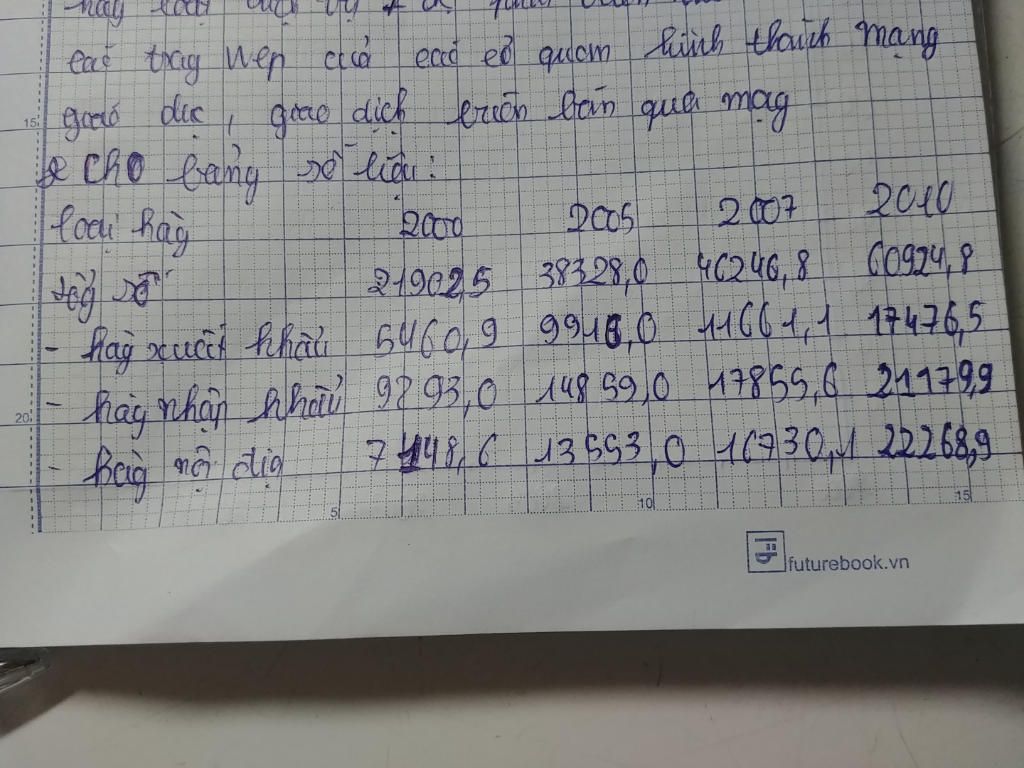 các trag Wep của các cơ quan hình thành mạng
giáo dục, giao dịch buôn bán qua mạg
15
* Cho bảng số liệu:
loại hàg 2000 2005 2007 2010
tổg số 21902,5 38328,0 46246,8 60924,8
- hàg xuất khẩu 5460,9 9916,0 11661,1 17476,5
- hàg nhập khẩu 9293,0 14859,0 17855,6 21179,9
20
- hàg nội địa 7148,6 13553,0 16730,1 22268,9
5 10 15
futurebook.vn